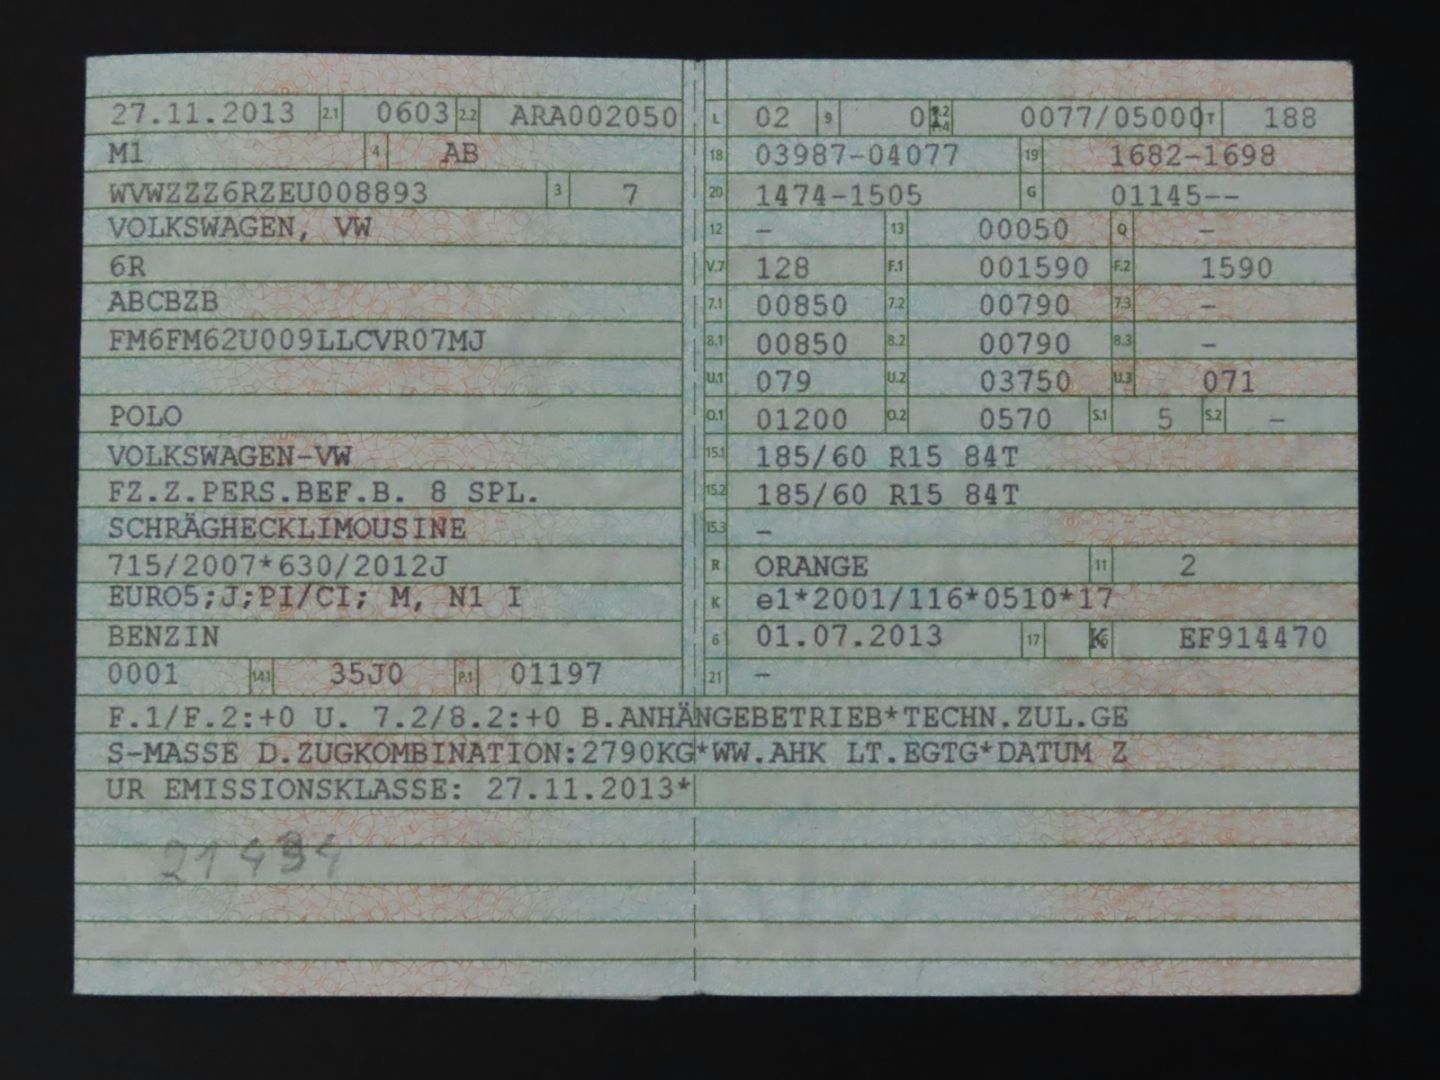 27.11.2013 2.1 0603 2.2 ARA002050
M1 4 AB
WVWZZZ6RZEU008893 3 7
VOLKSWAGEN, VW
6R
ABCBZB
FM6FM62U009LLCVR07MJ
POLO
VOLKSWAGEN-VW
FZ.Z.PERS.BEF.B. 8 SPL.
SCHRÄGHECKLIMOUSINE
715/2007*630/2012J
EURO5;J;PI/CI; M, N1 I
BENZIN
0001 14.1 35J0 P.1 01197
L 02 9 01 0077/05000 T 188
18 03987-04077 19 1682-1698
20 1474-1505 G 01145--
12 - 13 00050 Q -
V.7 128 F.1 001590 F.2 1590
7.1 00850 7.2 00790 7.3 -
8.1 00850 8.2 00790 8.3 -
U.1 079 U.2 03750 U.3 071
O.1 01200 O.2 0570 S.1 5 S.2 -
15.1 185/60 R15 84T
15.2 185/60 R15 84T
15.3 -
R ORANGE 11 2
K e1*2001/116*0510*17
6 01.07.2013 17 K EF914470
21 -
F.1/F.2:+0 U. 7.2/8.2:+0 B.ANHÄNGEBETRIEB*TECHN.ZUL.GE
S-MASSE D.ZUGKOMBINATION:2790KG*WW.AHK LT.EGTG*DATUM Z
UR EMISSIONSKLASSE: 27.11.2013*
21434